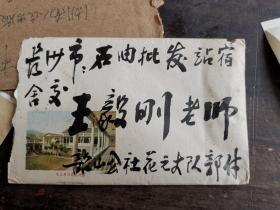 长沙市石油批发站宿
舍交
王毅刚老师
韶山公社花元大队部付